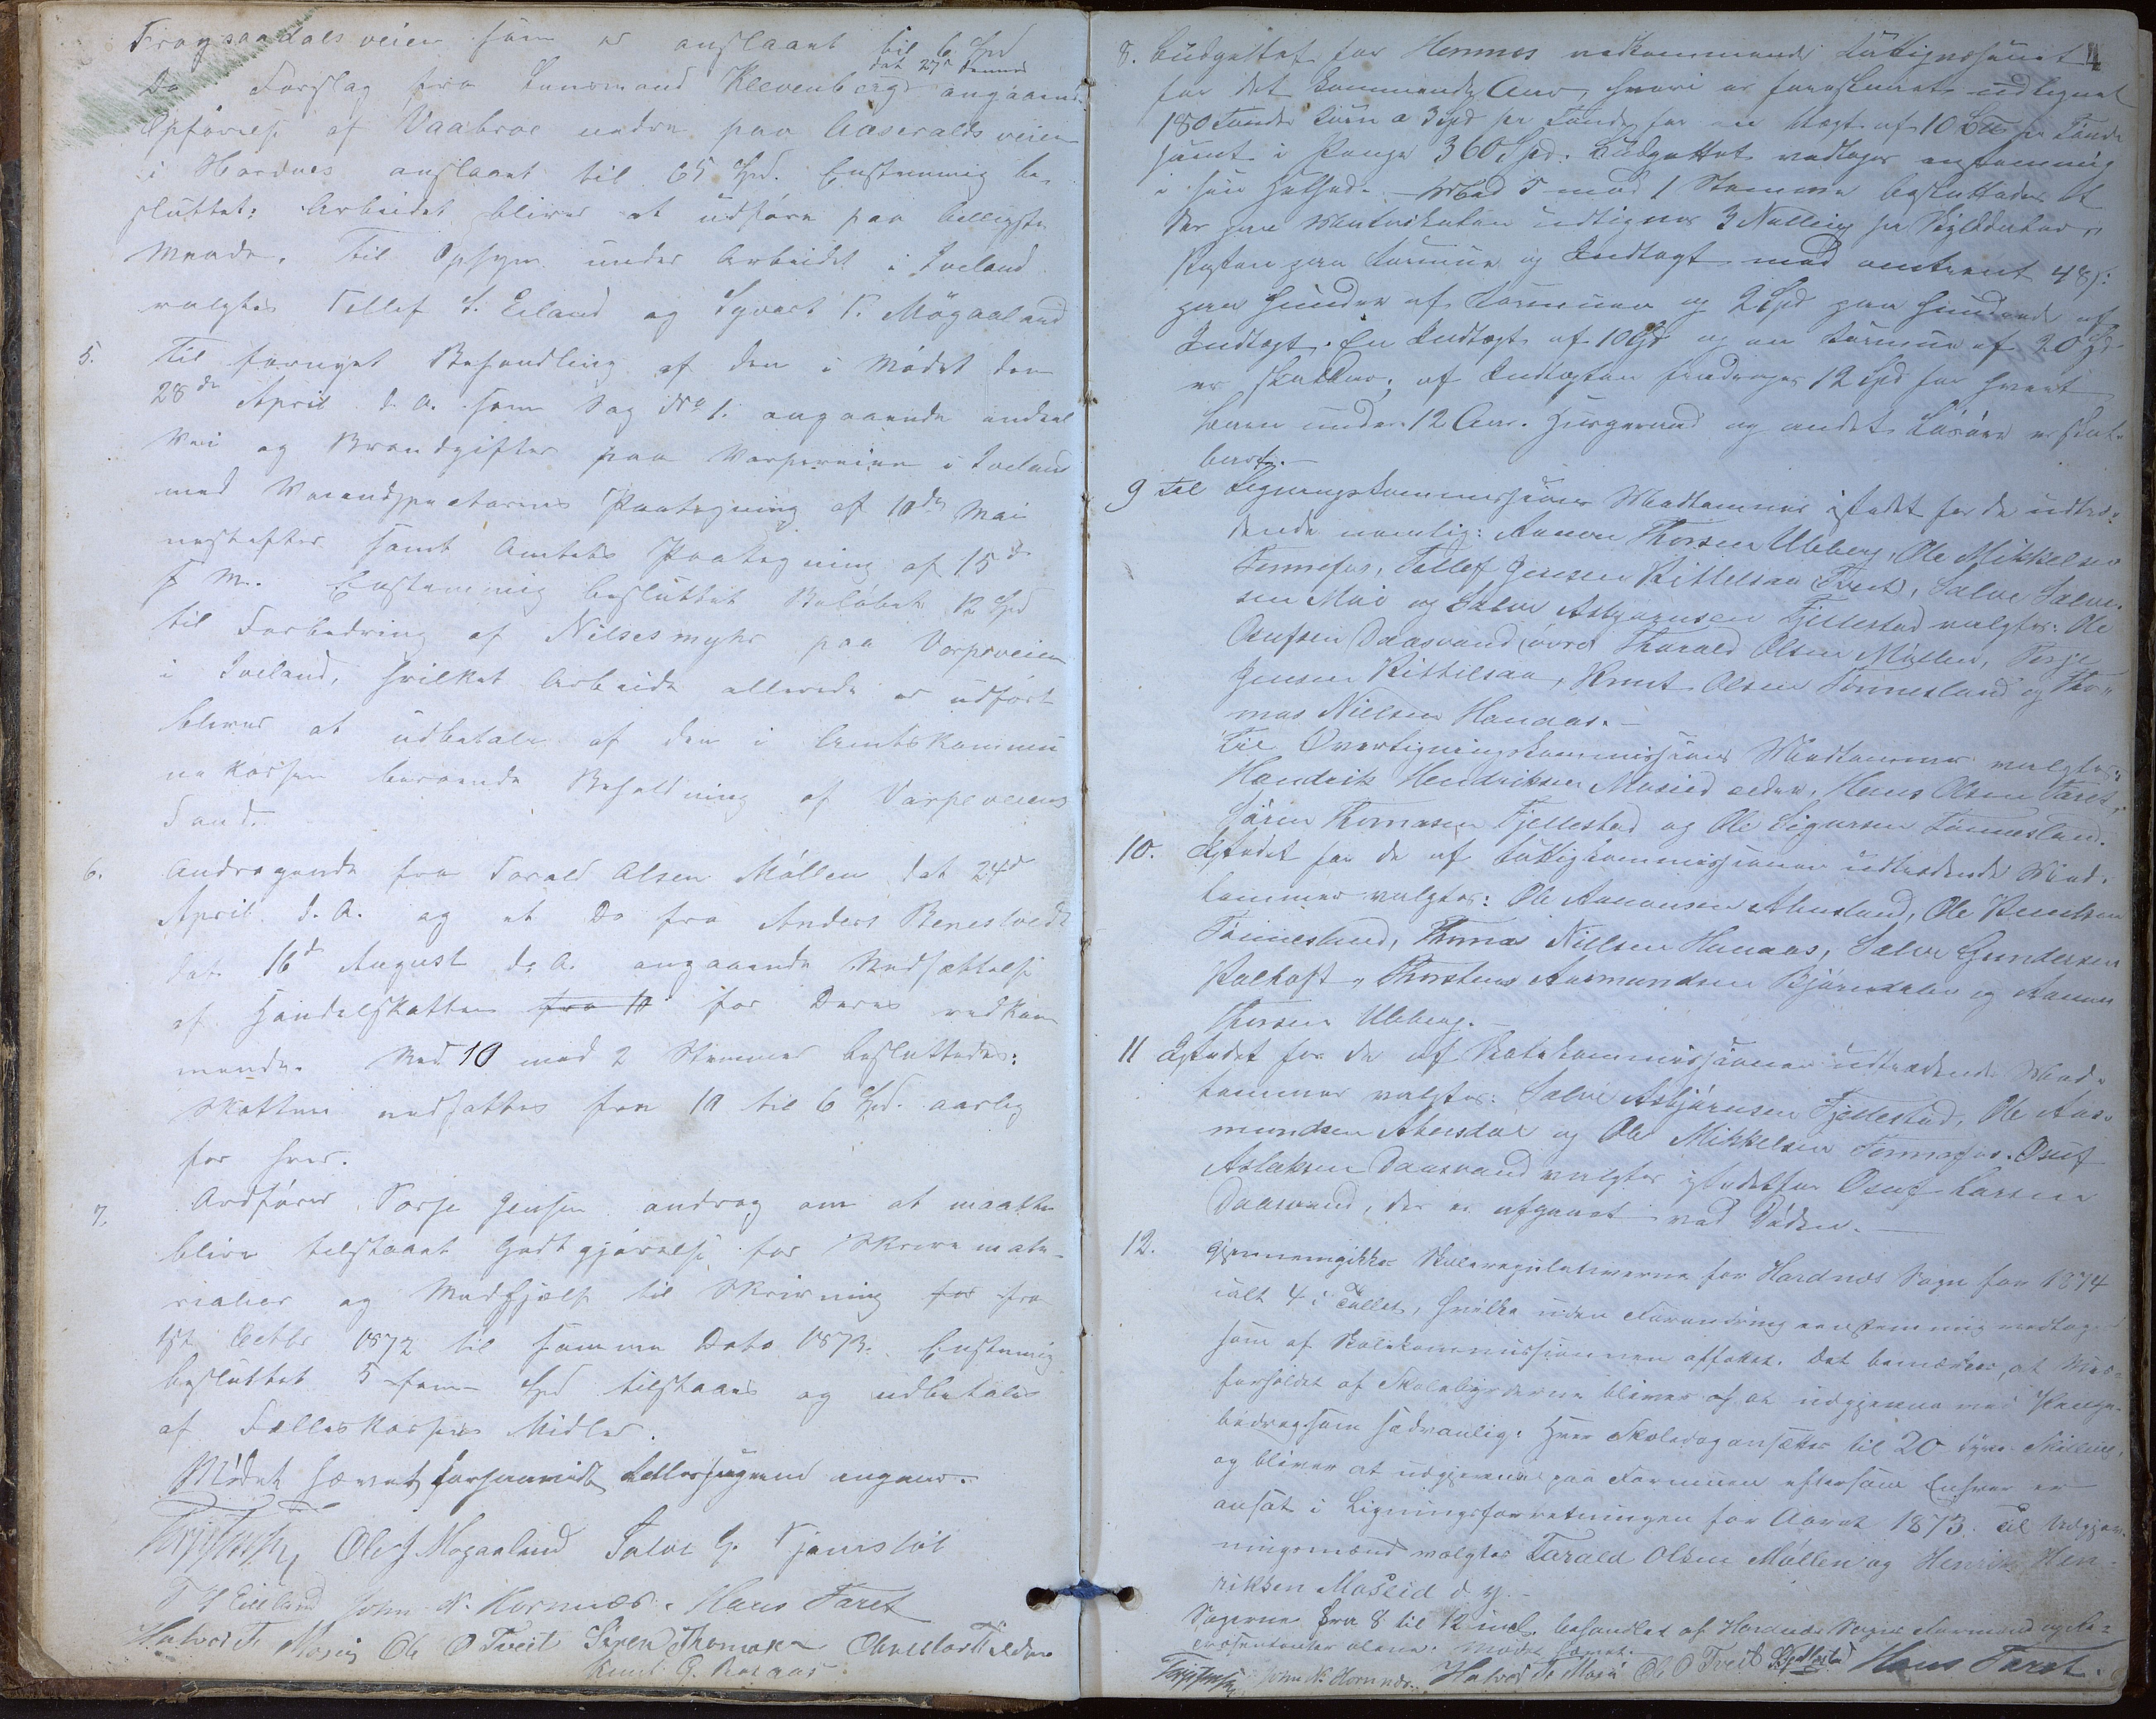 Frøysaadalsveien som er anslaaet til 6 Spd
dat 27de dennes
Do Forslag fra Lensmand Klevenberg angaaende
Opførelse af Vaabroe nedre paa Aaseralds veien
i Hordnes anslaaet til 65 Spd. Enstemmig be-
sluttet: Arbeidet bliver at udføre paa billigste
Maade. Til Opsyn under Arbeidet i Iveland
valgtes Tellef S. Eiland og Syvert K. Møgaaland
5. Til fornyet Behandling af den i Mødet den
28de April d. A. som Sag No 1. angaaende endeel
Vei og Brandgifter paa Vorpeveien i Iveland
med Veiinspecteurens Paategning af 10de Mai
nestefter samt Amtets Paategning af 15de
s. M. Enstemmig besluttet Beløbet 12 Spd
til Forbedring af Nilsesmyhr paa Vorpeveien
i Iveland, hvilket Arbeide allerede er udført
bliver at udbetale af den i Amtskommu
nekassen beroende Beholdning af Vorpeveiens
Fond.
6. Andragende fra Torald Olsen Møllen dat 24de
April d. A. og et Do fra Anders Beneslvedt
dat. 16de August d. A. angaaende Nedsættelse
af Handelskatten fra 10 for Deres vedkom
mende. Med 10 mod 2 Stemmer besluttedes:
Skatten nedsattes fra 10 til 6 Spd. aarlig
for hver.
7. Ordfører Terje Jensen androg om at maatte
blive tilstaaet Godtgjørelse for Skrivemate-
rialier og Medhjælp til Skrivning for fra
1st Octbr 1872 til samme Dato 1873. Enstemmig
besluttet 5 fem Spd tilstaaes og udbetales
af Felleskassens Midler.
Mødet hævet forsaavidt Fellessagerne angaaer.
Ole J Mogaaland Salve G.
T S Eieland John N. Hornnes. Hans Taret
Halvor Mosei Ole O Tveit Søren Thomasen
Knut G.
8. Budgettet for Hornnes vedkommende Fattigvæsenet
for det kommende Aar, hvori er foreslaaet udlignet
180 Tønder Korn a 3 Spd pr Tønde for en Vægt af 10 pr Tønde
samt i Penge 360 Spd. Budgettet vedtoges enstemmig
i sin Helhed. Med 5 mod 1 Stemme besluttedes at
der paa Matrikulen udlignes 3 Skilling pr Skylddaler,
Resten paa Formue og Indtægt med omtrent 48 s:
paa hundre af Formuen og 2 Spd paa hundrede af
Indtægt. En Indtægt af 10 Spd og en Formue af 20 Spd.
er skatbar; af Indtægten fradrages 12 Spd for hvert
Barn under 12 Aar. Husgeraad og andet Løsøre er skat-
bart.
9 Til Ligningskommissions Medlemmer istedet for de udtræ-
dende nemlig: Aanon Thorsen Ubberg, Ole Mikkelsen
Fennefos, Tellef Jensen Kittelsaa (Tveit), Salve Salve-
sen Moi og Salve Asbjørnsen Fjellestad valgtes: Ole
Osufsen Daasvand øvre, Tharald Olsen Møllen, Terje
Jensen Kittilsaa, Knut Olsen Tønnesland og Tho-
mas Nielsen Hanaas.
Til Overligningskommissions Medlemmer valgtes:
Hendrik Hendriksen Moseid ældre, Hans Olsen Taret,
Søren Thomasen Fjellestad og Ole Sigursen Tønnesland.
10. Istedet for de af Fattigkommissionen udtrædende Med-
lemmer valgtes: Ole Aanonsen Abusland, Ole Knudsen
Tønnesland, Thomas Nielsen Hanaas, Salve Gundersen
Kalhoft, Thorstens Aasmundsen Bjørndalen og Aanon
Thorsen Ubberg.
11 Istedet for de af Skolekommissionen udtrædende Med-
lemmer valgtes: Salve Asbjørnsen Fjellestad, Ole Aas-
mundsen Abusdal og Ole Mikkelsen Fennefos. Osuf
Aslaksen Daasvand valgtes istedetfor Osuf Larsen
Daasvand, der er afgaaet ved Døden.
12. Gjennemgikkes Skoleregulativerne for Hordnæs Sogn for 1874
ialt 4 i Tallet, hvilke uden Forandring eenstemmig vedtoges
som af Skolekommissionen affattet. Det bemærkes, at Mis-
forholdet af Skolebyrderne bliver at at udgjævne med Penge-
bidrag som sædvanlig. Hver Skoledag ansættes til 20 tyve Skilling,
og bliver at udgjævne paa Formuen eftersom Enhver er
ansat i Ligningsforretningen for Aaret 1873. Til Udgjæv-
ningsmænd valgtes Tarald Olsen Møllen og Henrik Hen-
riksen Moseid d. y.
Sagerne fra 8 til 12 incl. behandlet af Hordnæs Sogns Formænd og Re-
præsentanter alene. Mødet hævet.
John N. Hornnes. Halvor Mosei Ole O Tveit Fjellestad Hans Taret.